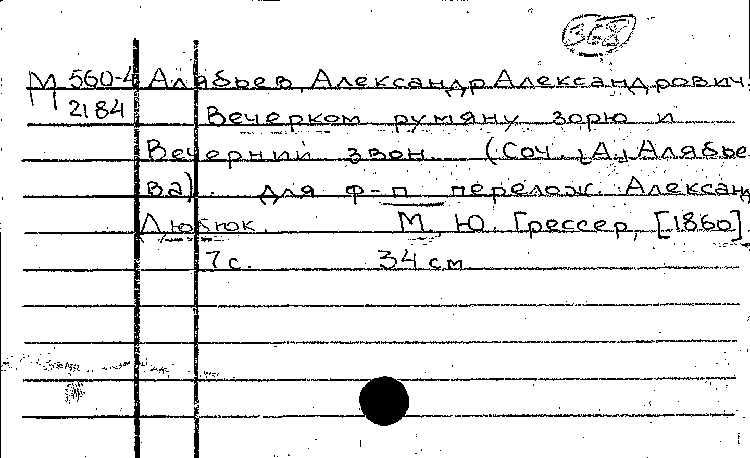 368
М 560-4 Алябьев, Александр Александрович.
2184 Вечерком румяну зорю и
Вечерний звон (Соч. А. Алябье
ва). Для ф-п перелож. Александ
Люкс
М., Ю. Грессер, [1860].
7 с. 34 см